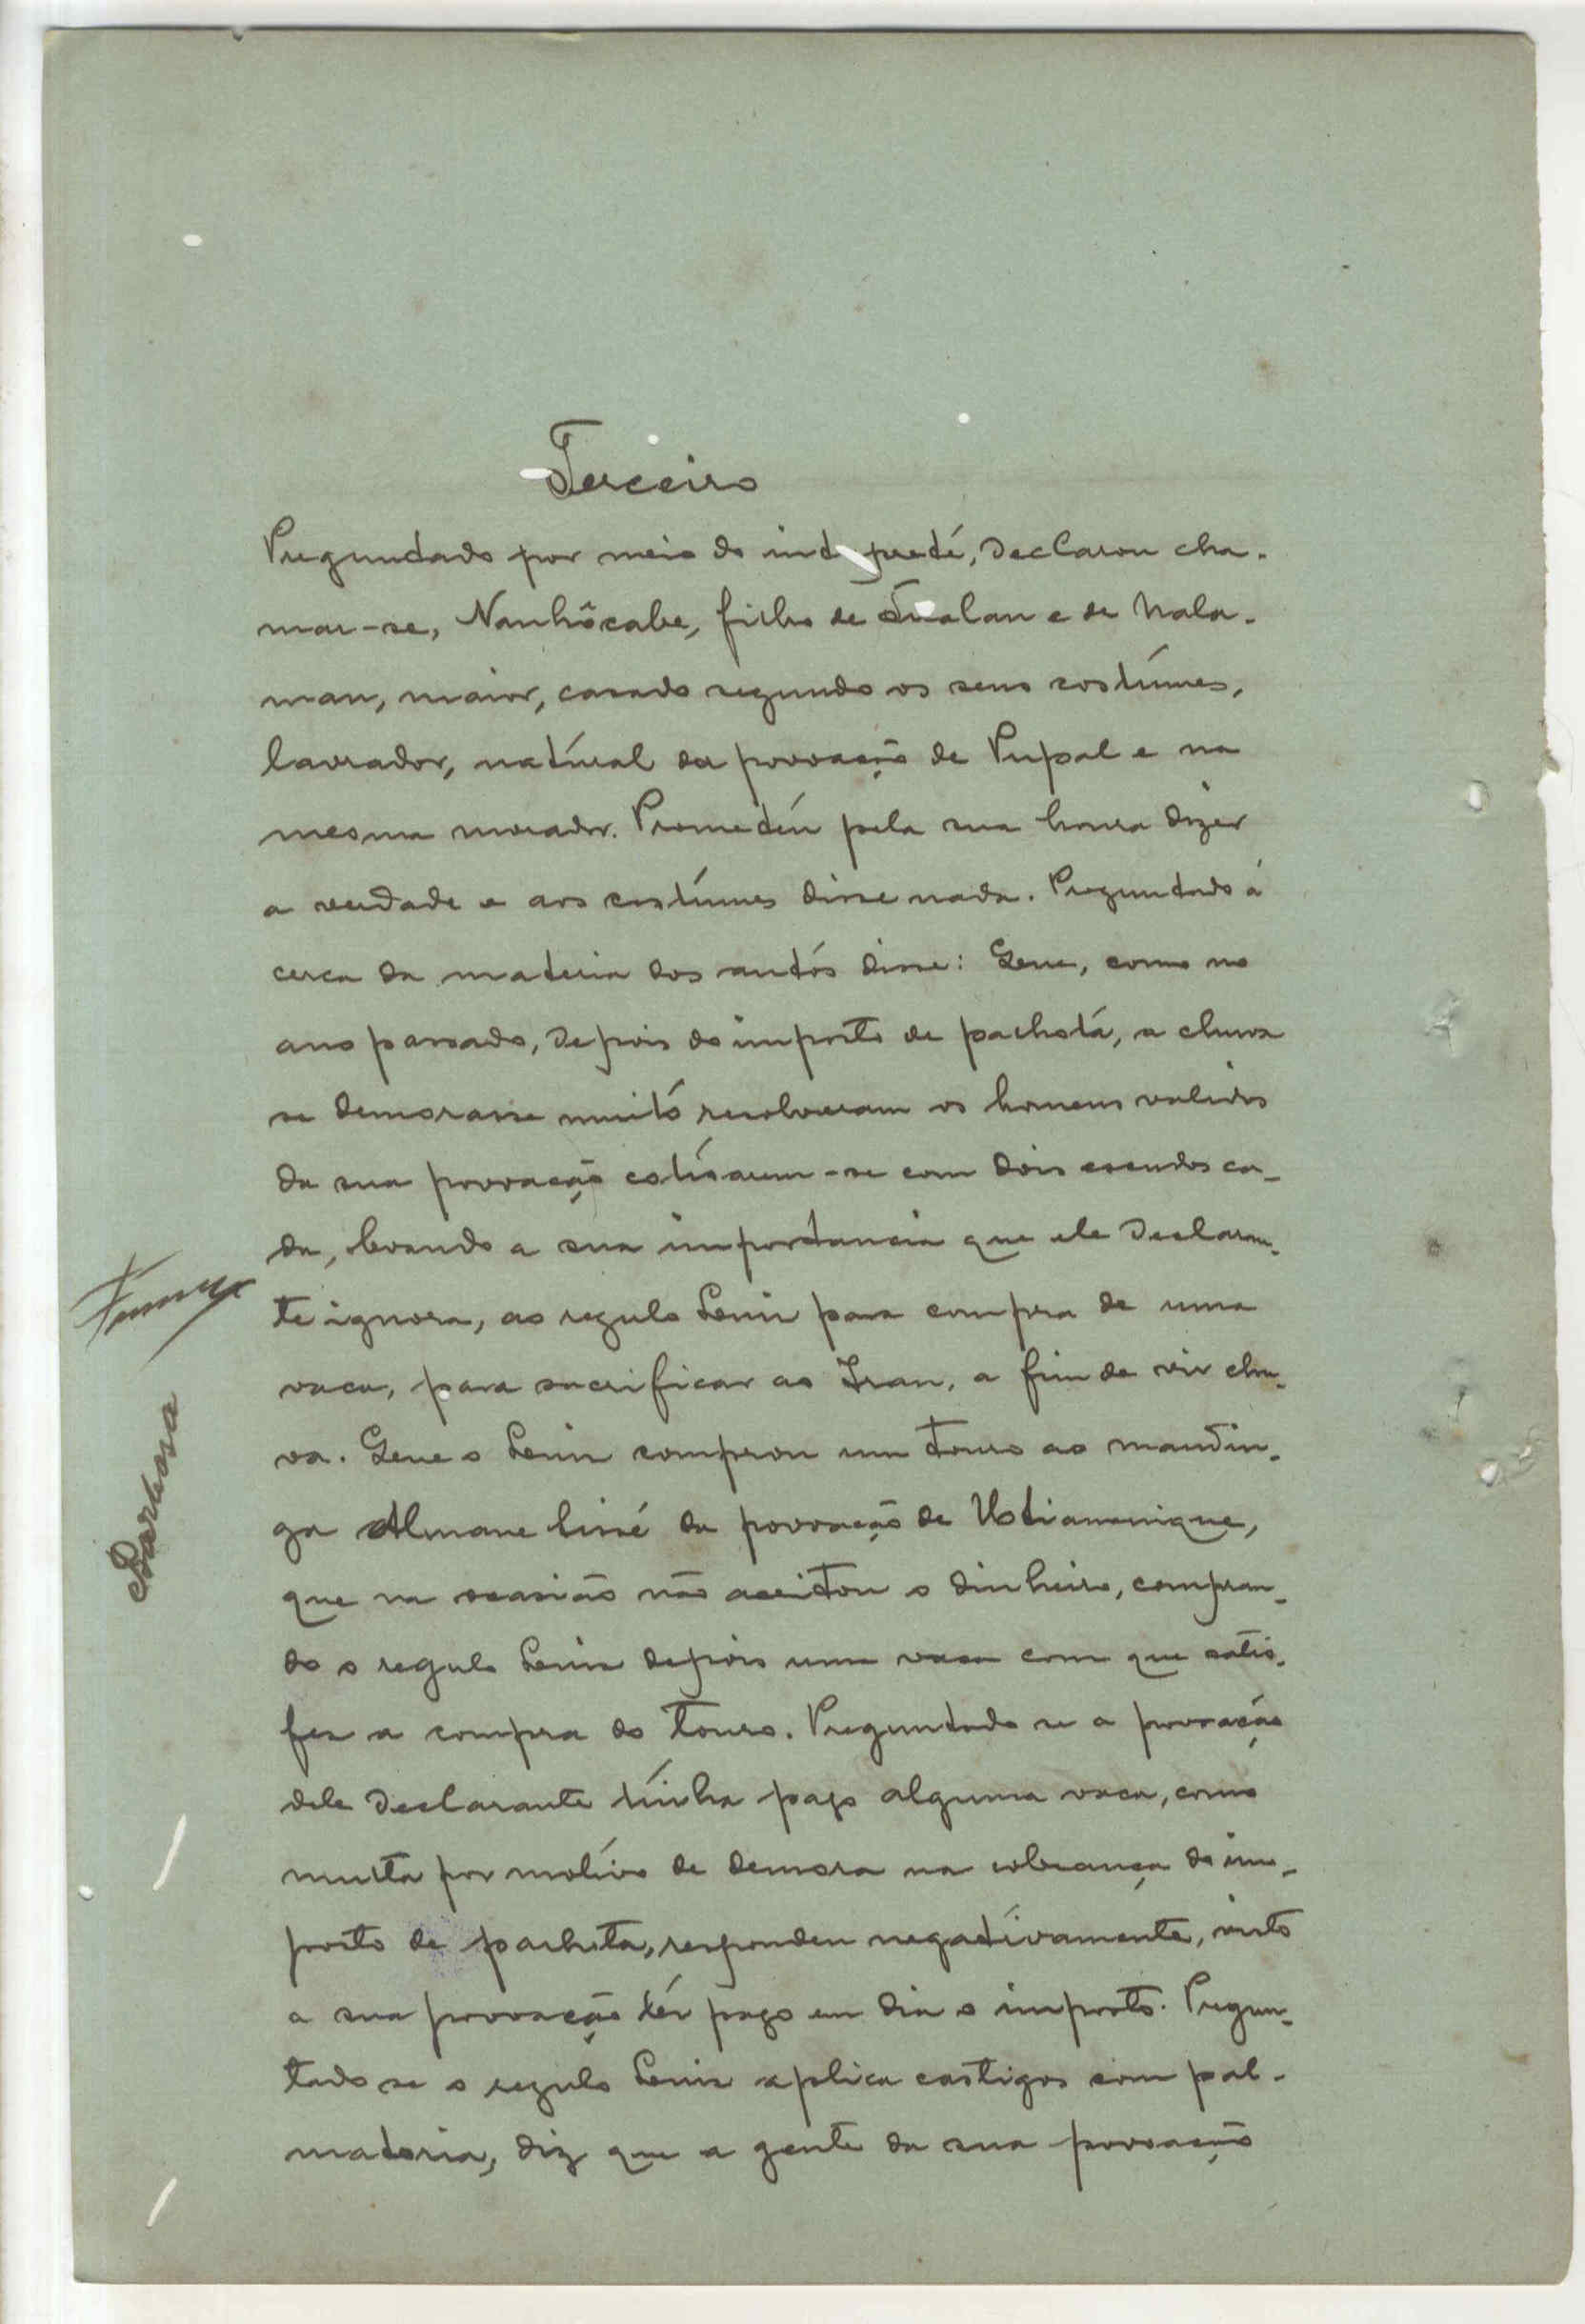 Terceiro
Preguntado por meio do intepreté, declarou cha-
mar-se, Nanhôcabe, filho de Tualan e de Nala-
man, maior, casado segundo os seus costúmes,
lavrador, natúral da povoação de Pupal e na
mesma morador. Prometeú pela sua honra dizer
a verdade e aos costúmes disse nada. Preguntado á
cerca da materia dos autós disse: Que, como no
ano passado, depois do imposto de palhotá, a chuva
se demorasse muitó resolveram os homens validos
da sua povoação cotísarem-se com dois escudos ca-
da, levando a sua importancia que ele declaran-
te ignora, ao regulo Lenin para compra de uma
vaca, para sacrificar ao Iran, a fim de vir chu-
va. Que o Lenin comprou um touro ao mandin-
ga Almane Cissé da povoação de
que na ocasião não aceitou o dinheiro, compran-
do o regulo Lenin depois uma vaca com que satis-
fez a compra do touro. Preguntado se a povoação
dele declarante tínha pago alguma vaca, como
multa por motívo de demora na cobrança do im-
posto de palhota, respondeu negatívamente, visto
a sua povoação tér pago em dia o imposto. Pregun-
tado se o regulo Lenin aplica castigos com pal-
matoria, diz que a gente da sua povoação
Barbosa